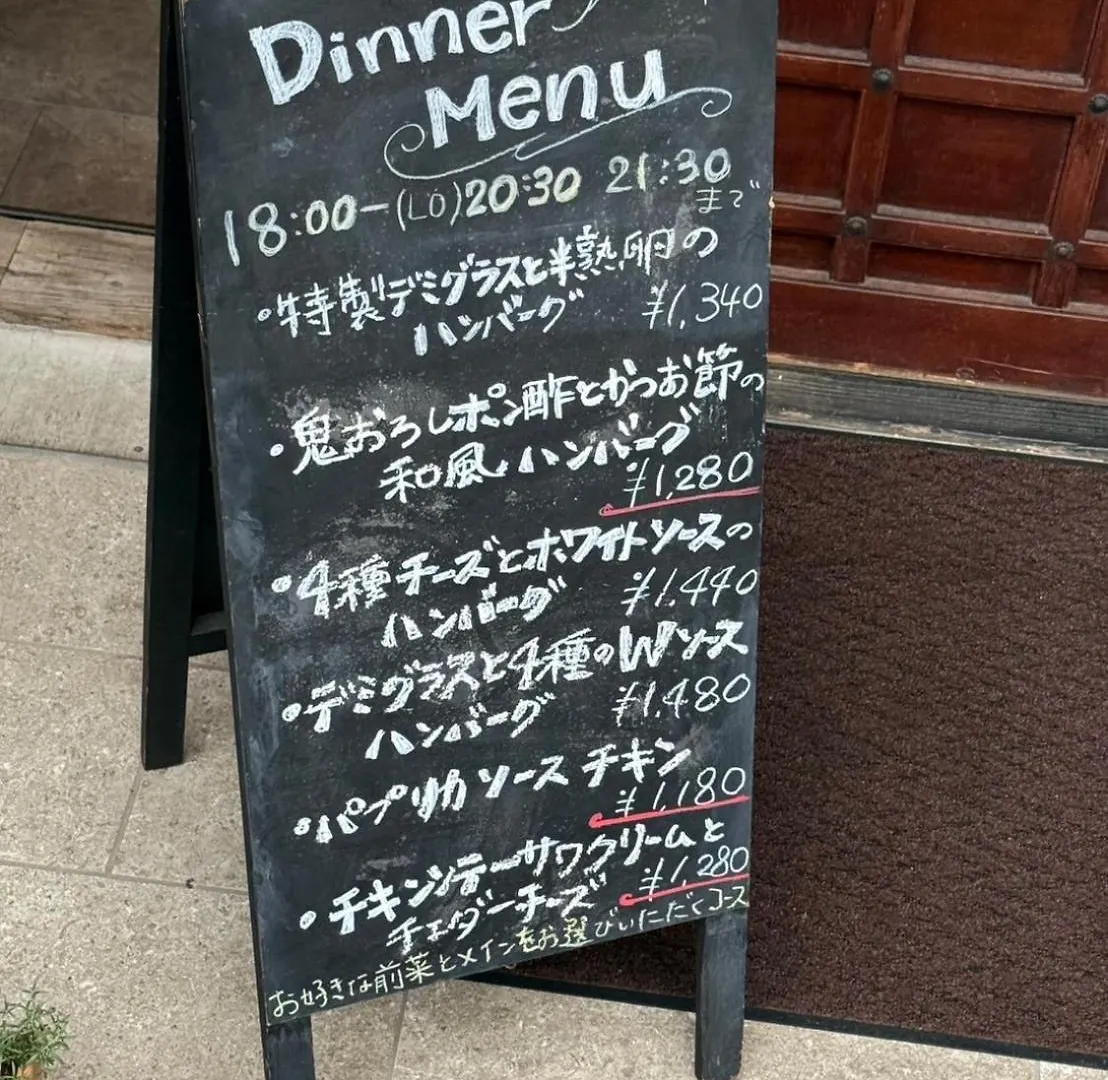 Dinner
Menu
18:00-(LO)20:30 21:30
まで
・特製デミグラスと半熟卵の
ハンバーグ ¥1,340
・鬼おろしポン酢とかつお節の
和風ハンバーグ
¥1,280
・4種チーズとホワイトソースの
ハンバーグ ¥1,440
・デミグラスと4種のWソース
ハンバーグ ¥1,480
・パプリカソースチキン
¥1,180
・チキンソテーサワクリームと
チェダーチーズ ¥1,280
お好きな前菜とメインをお選びいただくコース